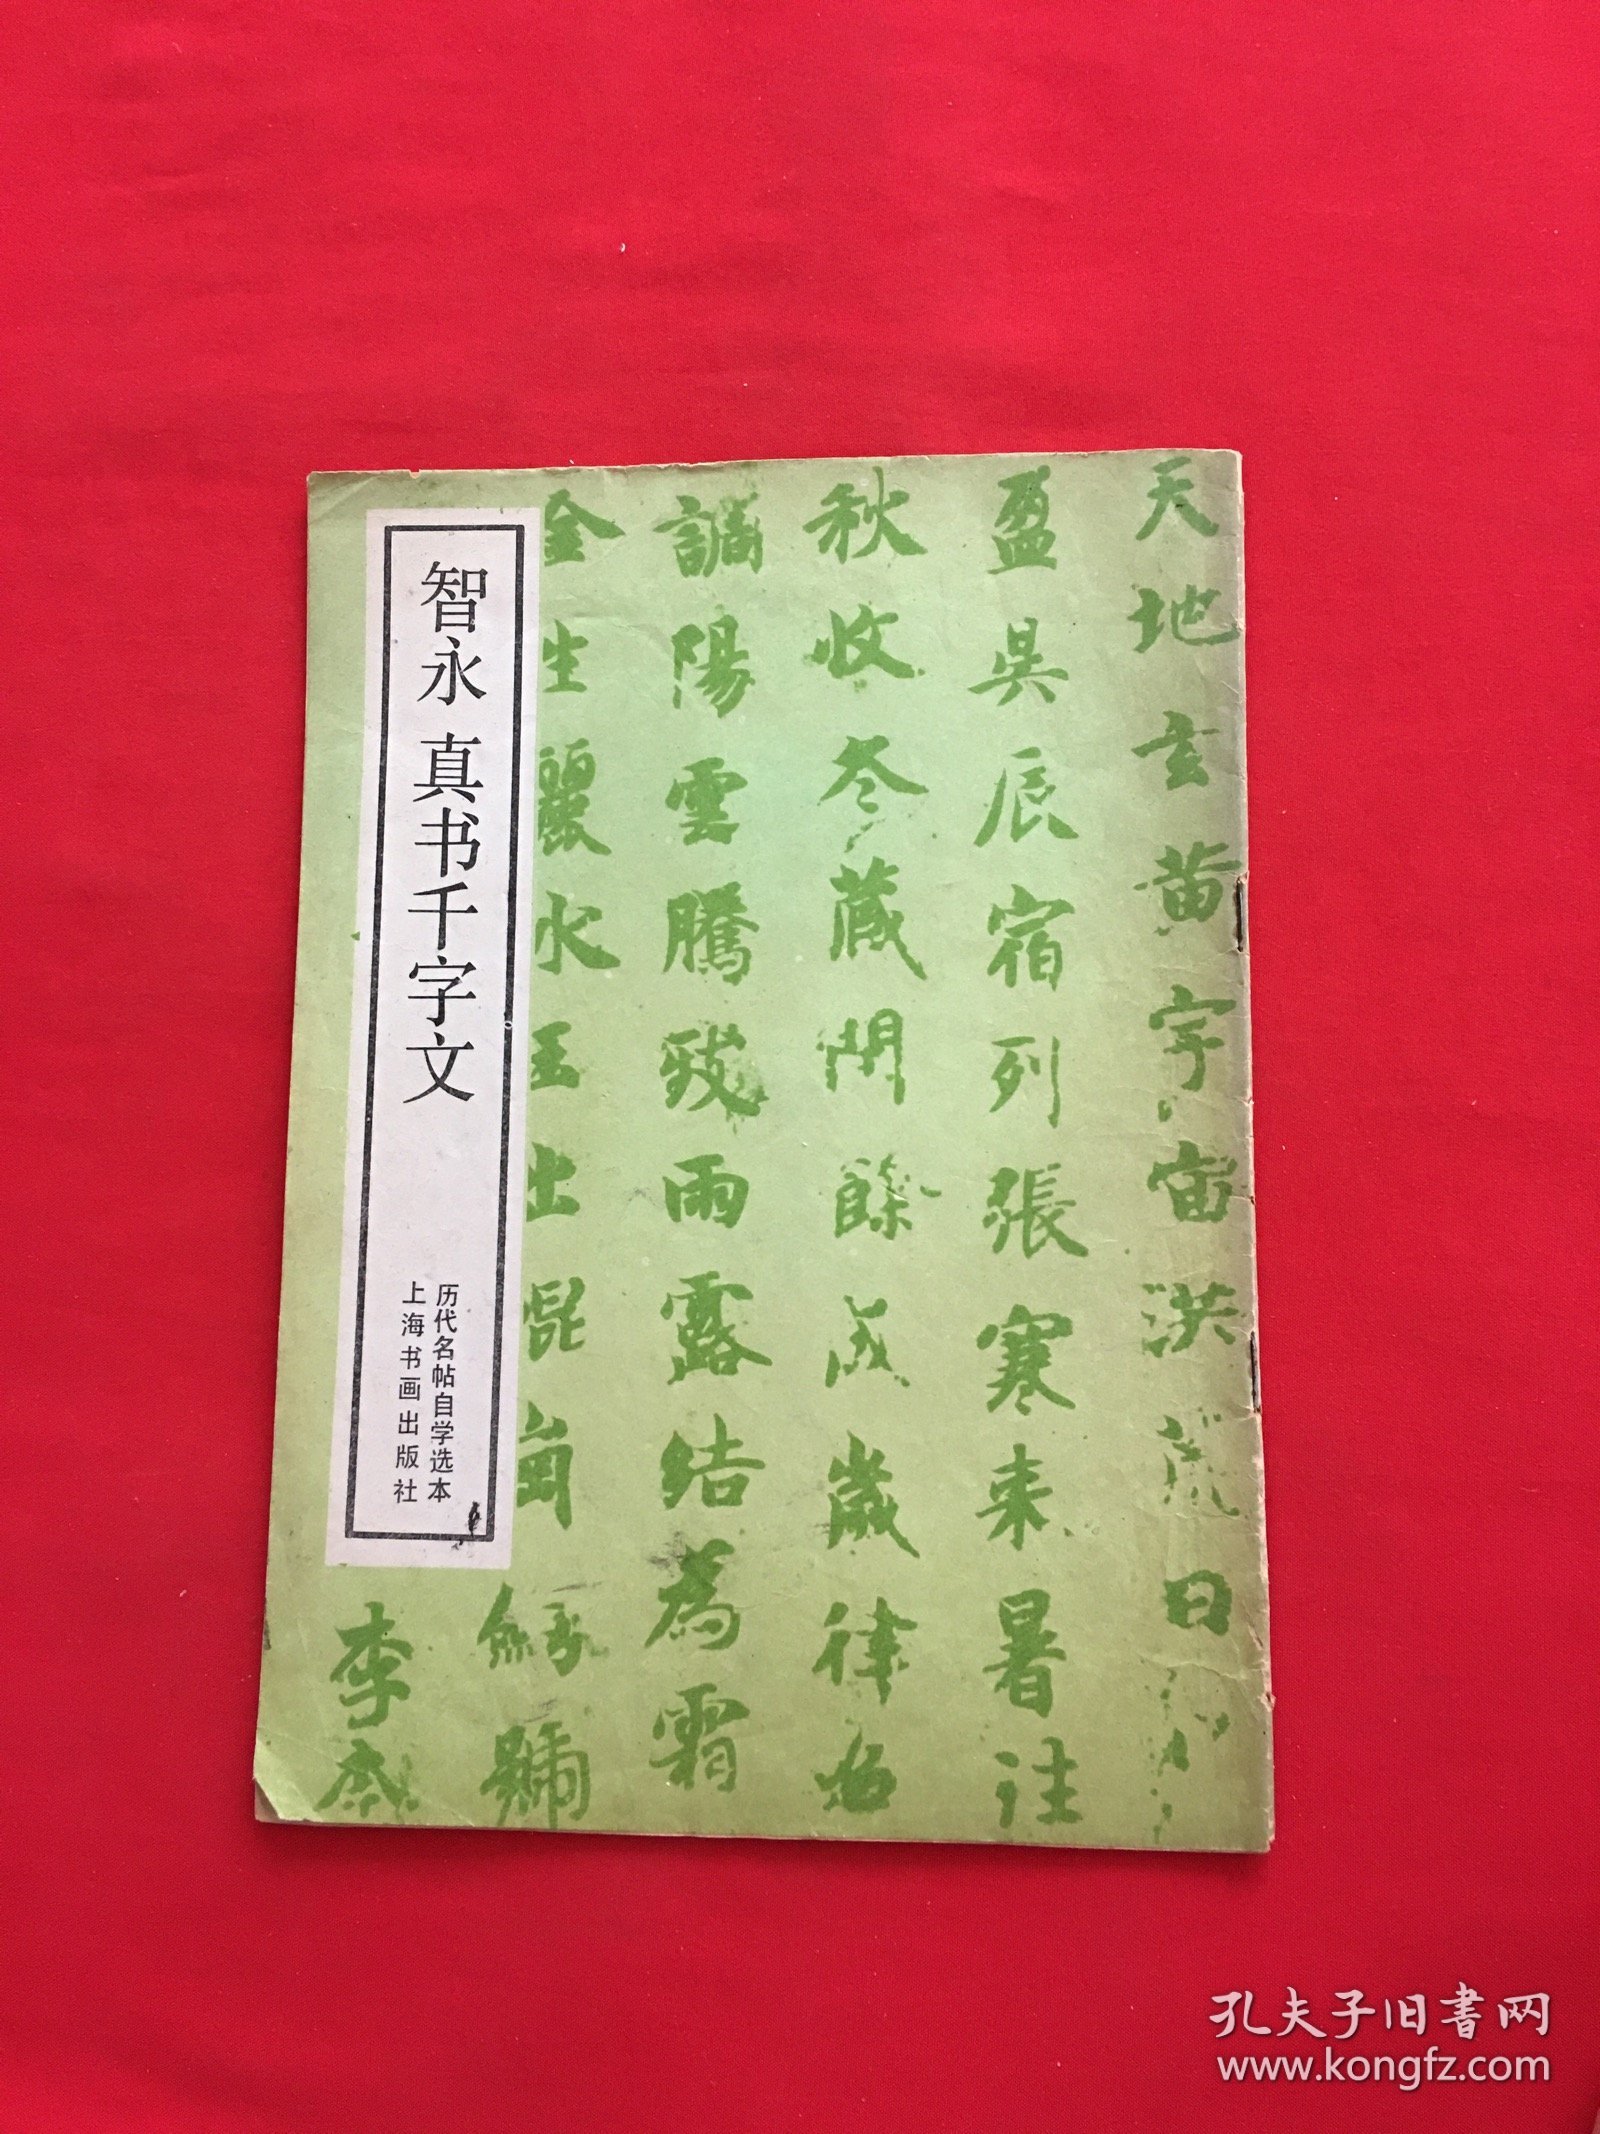 智永 真书千字文
历代名帖自学选本
上海书画出版社
天地玄黄宇宙洪荒日
盈昃辰宿列張寒来暑往
秋收冬藏閏餘成歲律
調陽雲騰致雨露結為霜
金生麗水玉出崐崗劒號
李柰
孔夫子旧書网
www.kongfz.com